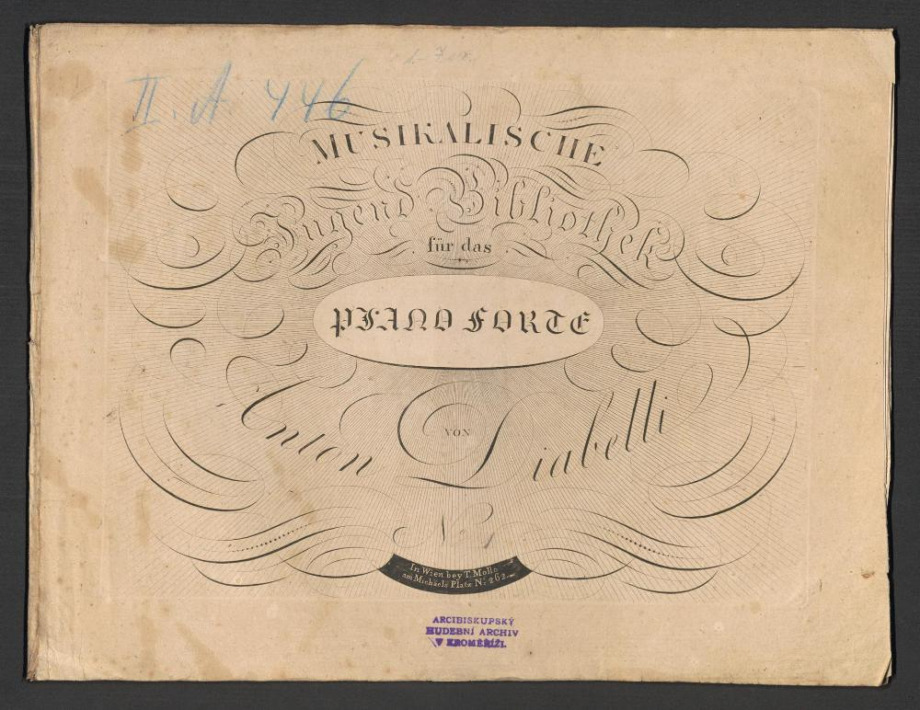 II. A 446
MUSIKALISCHE
Jugend Bibliothek
für das
PIANO FORTE
VON
Anton Diabelli
No
In Wien bey T. Mollo
am Michaels Platz No 262
ARCIBISKUPSKÝ
HUDEBNÍ ARCHIV
V KROMĚŘÍŽI.